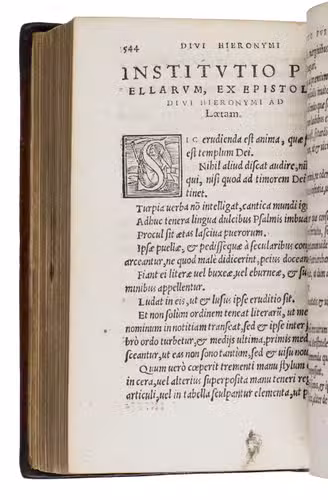 544 DIVI HIERONYMI
INSTITVTIO P
ELLARVM, EX EPISTOL
DIVI HIERONYMI AD
Lœtam.
SIC erudienda est anima, quæ
est templum Dei.
Nihil aliud discat audire, nil
qui, nisi quod ad timorem Dei
tinet.
Turpia verba nō intelligat, cantica mundi ig
Adhuc tenera lingua dulcibus Psalmis imbua
Procul sit ætas lasciua puerorum.
Ipsæ puellæ, & pedissequæ à secularibus con
arceantur, ne quod male didicerint, peius docean
Fiant ei literæ vel buxeæ, vel eburneæ, & su
minibus appellentur.
Ludat in eis, ut & lusus ipse eruditio sit.
Et non solùm ordinem teneat literarū, ut me
nominum in notitiam transeat, sed & ipse inter
brò ordo turbetur, & medijs ultima, primis med
sceantur, ut eas non sono tantùm, sed & uisu nou
Quum uerò cœperit trementi manu stylum
in cera, uel alterius superposita manu teneri re
articuli, uel in tabella sculpantur elementa, ut p